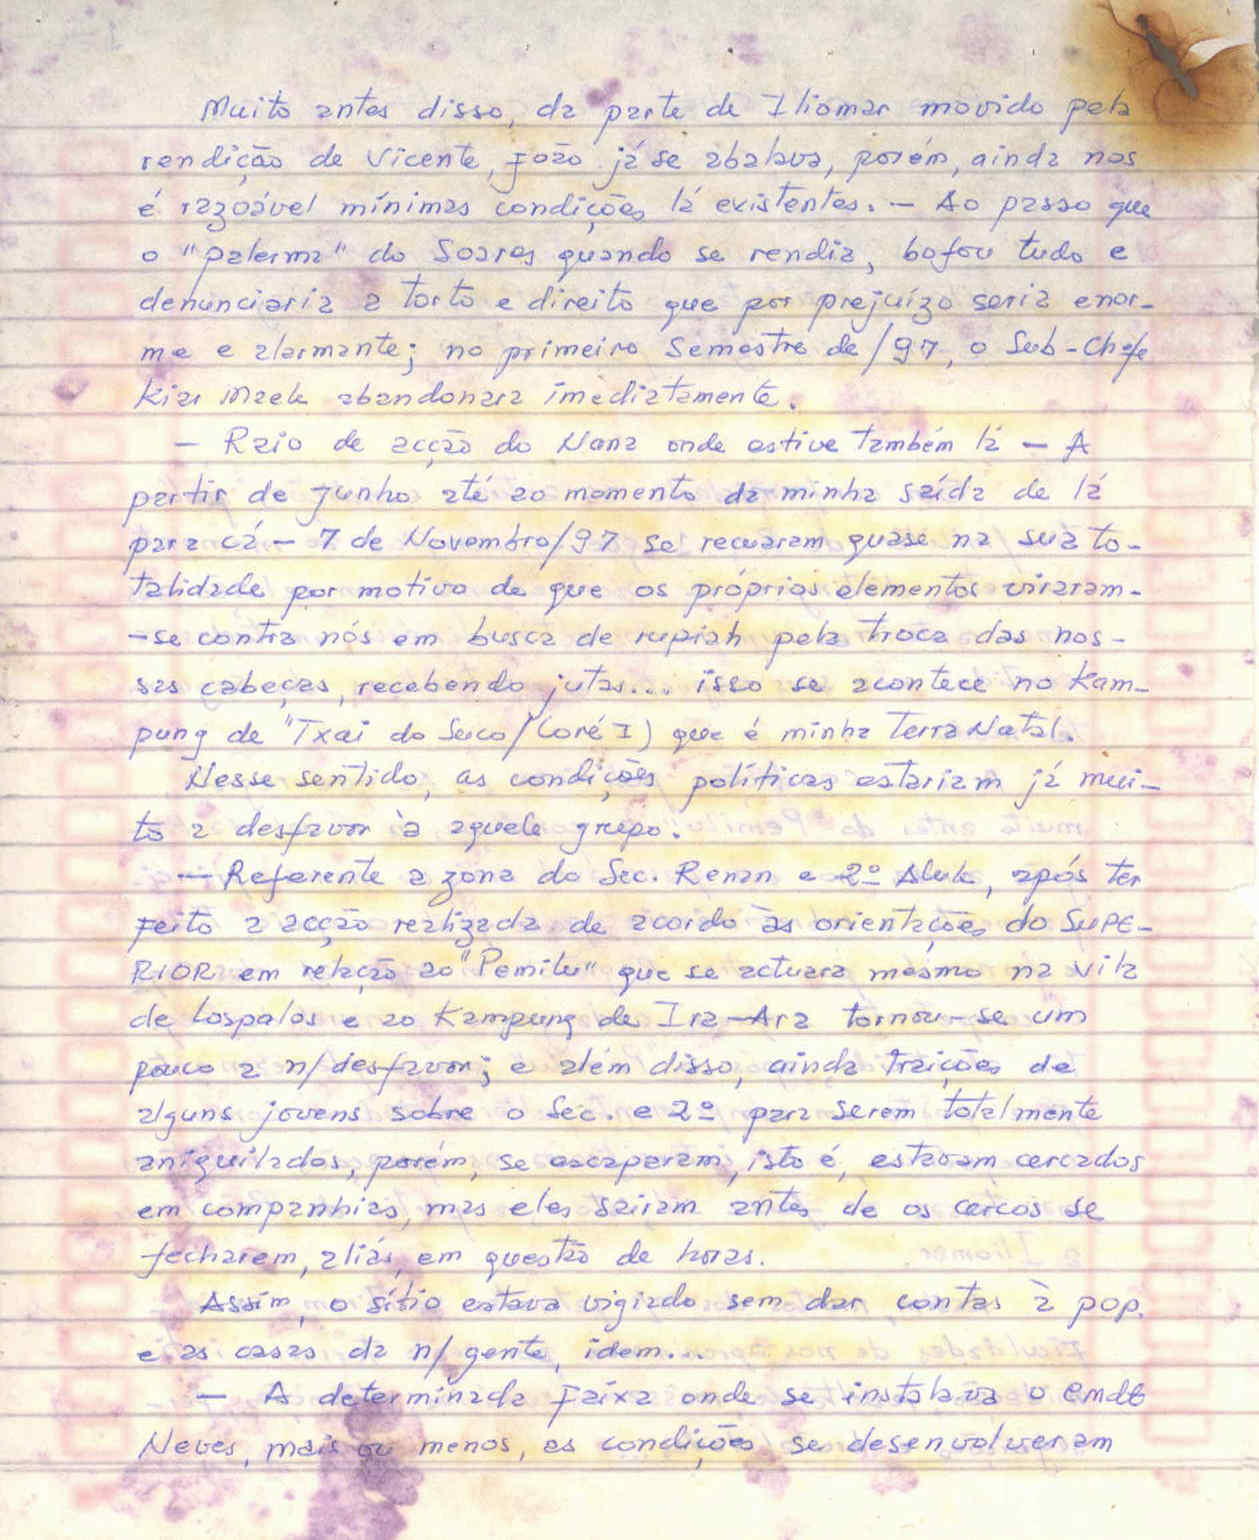 Muito antes disso, da parte de Iliomar movido pela
rendição de Vicente, João já se abalava, porém, ainda nos
é razoável mínimas condições lá existentes. — Ao passo que
o "palerma" do Soares quando se rendia, bofou tudo e
denunciaria a torto e direito que por prejuízo seria enor-
me e alarmante; no primeiro Semestre de /97, o Sub-Chefe
Kiar Maek abandonara imediatamente.
— Raio de acção do Nana onde estive também lá — A
partir de Junho até ao momento da minha saída de lá
para cá — 7 de Novembro/97 se recuaram quase na sua to-
talidade por motivo de que os próprios elementos viraram-
-se contra nós em busca de rupiah pela troca das nos-
sas cabeças, recebendo jutas... isso se acontece no Kam-
pung de "Txai do Suco/Loré I) que é minha Terra Natal.
Nesse sentido, as condições políticas estariam já mui-
to a desfavor à aquele grupo.
— Referente a zona do Sec. Renan e 2º Aluk, após ter
feito a acção realizada de acordo às orientações do SUPE-
RIOR em relação ao "Pemilu" que se actuara mesmo na vila
de Lospalos e ao Kampung de Ira-Ara tornou-se um
pouco a n/desfavor; e além disso, ainda traições de
alguns jovens sobre o Sec. e 2º para serem totalmente
aniquilados, porém, se escaparam, isto é, estavam cercados
em companhias, mas eles sairam antes de os cercos se
fecharem, aliás, em questão de horas.
Assim, o sítio estava vigiado sem dar contas à pop.
e as casas da n/gente, idem...
— A determinada faixa onde se instalava o Cmdt
Neves, mais ou menos, as condições se desenvolveram